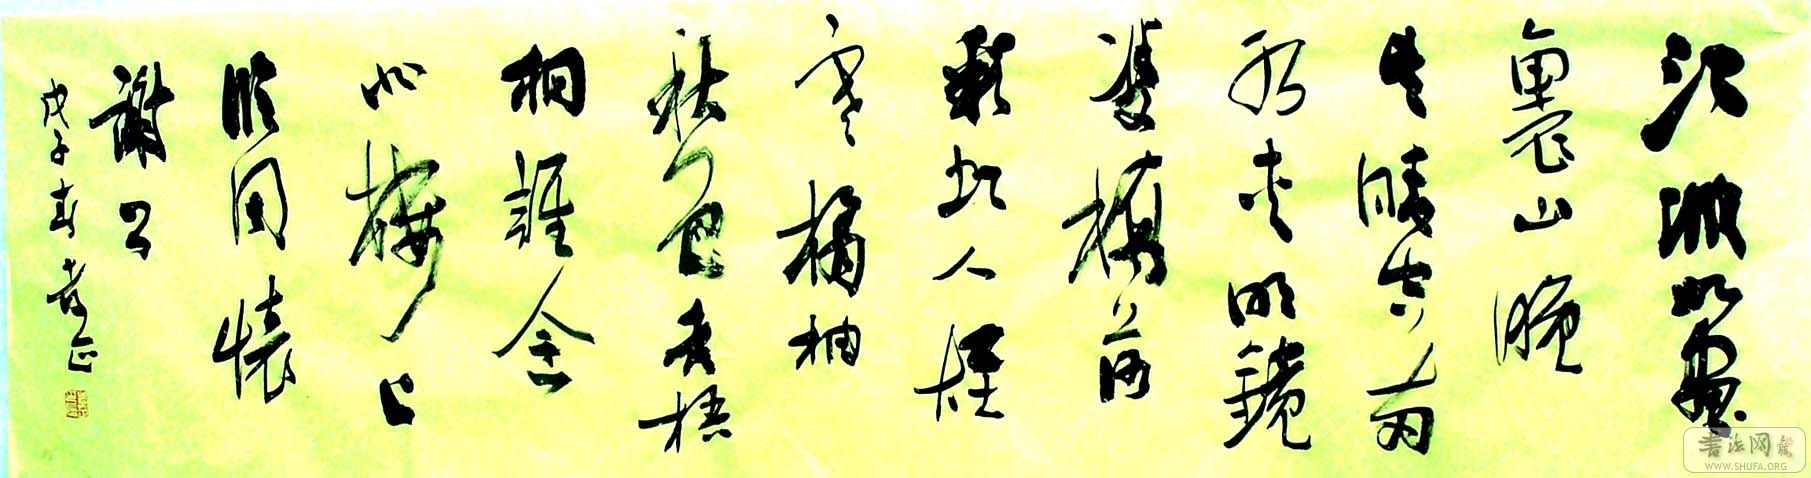 江城如畫
裏山晚
望晴空兩
水夾明鏡
雙橋落
彩虹人煙
寒橘柚
秋色老梧
桐誰念
北樓上
臨風懷
謝公
戊子春
书法网
WWW.SHUFA.ORG